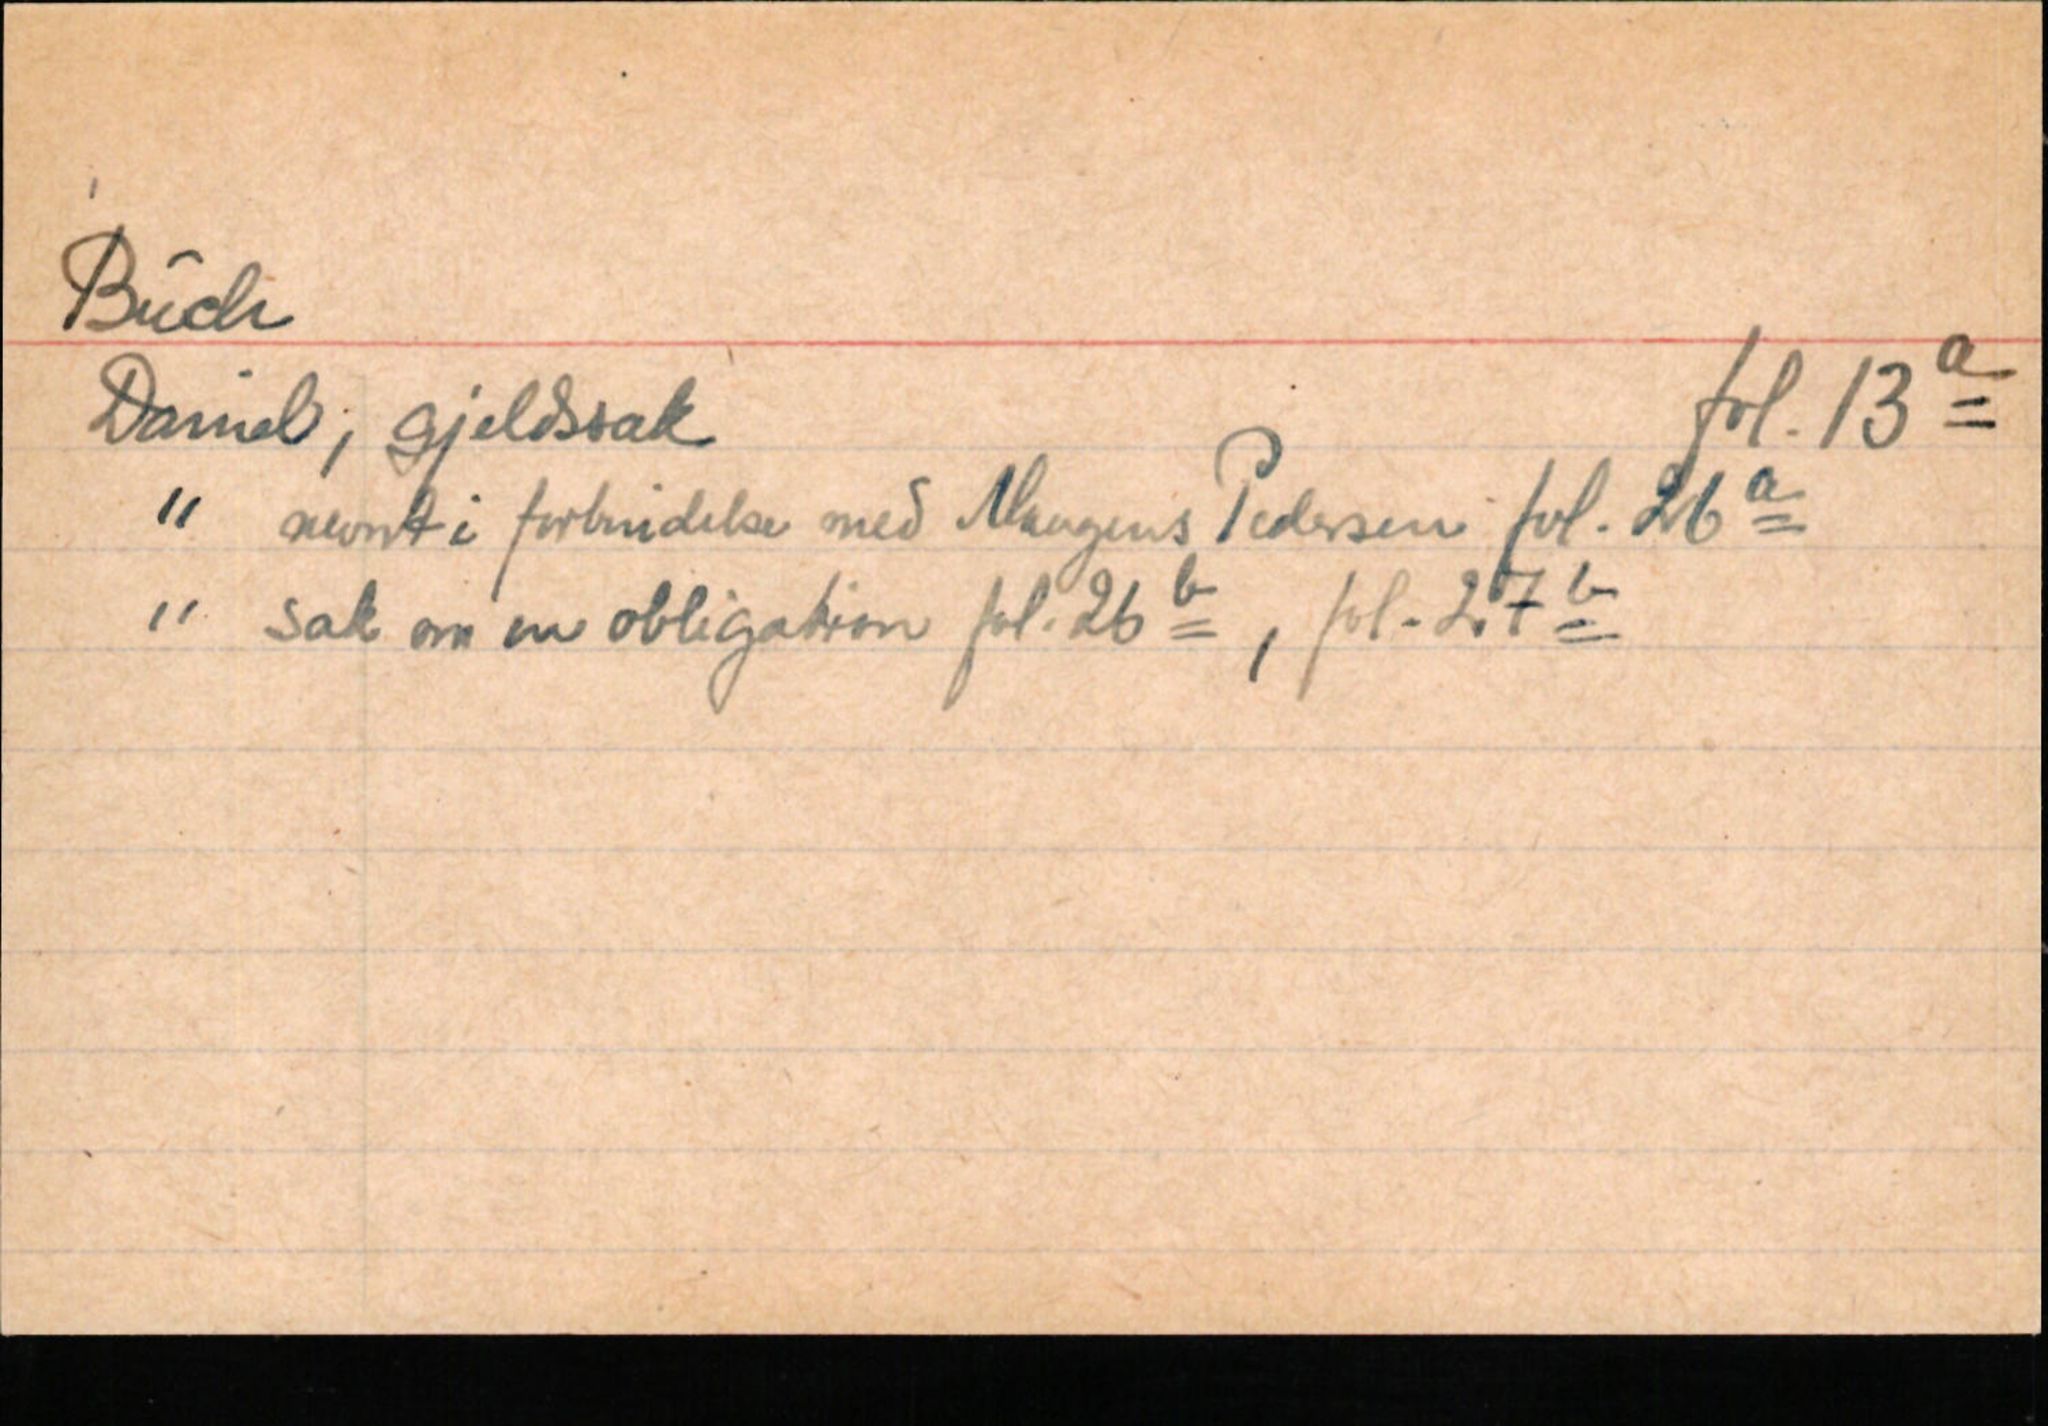 Bûch
Daniel, gjeldssak fol. 13 a
" nevnt i forbindelse med Maugens Pedersen fol. 26 a
" sak om en obligation fol. 26 b, fol. 27 b